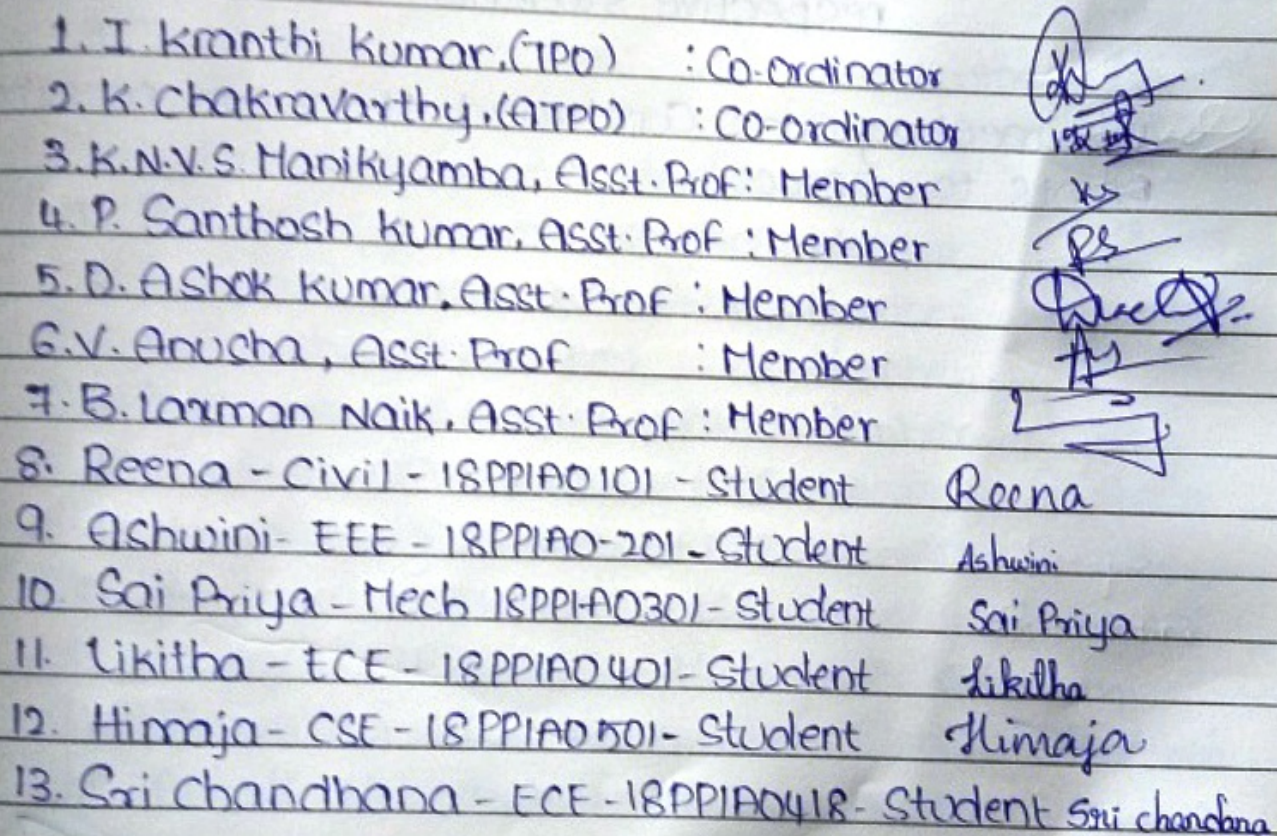 1. I. Kranthi Kumar, (TPO) : Co-ordinator
2. K. Chakravarthy, (ATPO) : CO-ordinator
3. K.N.V.S. Manikyamba, Asst. Prof : Member
4. P. Santhosh Kumar, Asst. Prof : Member PS
5. D. Ashok Kumar, Asst. Prof : Member
6. V. Anusha, Asst. Prof : Member
7. B. Laxman Naik, Asst. Prof : Member
8. Reena - Civil - 18PP1A0101 - Student Reena
9. Ashwini - EEE - 18PP1A0-201 - Student Ashwini
10 Sai Priya - Mech 18PP1A0301 - Student Sai Priya
11. Likitha - ECE - 18PP1A0401 - Student Likitha
12. Himaja - CSE - 18PP1A0501 - Student Himaja
13. Sri Chandhana - ECE - 18PP1A0418 - Student Sri chandana